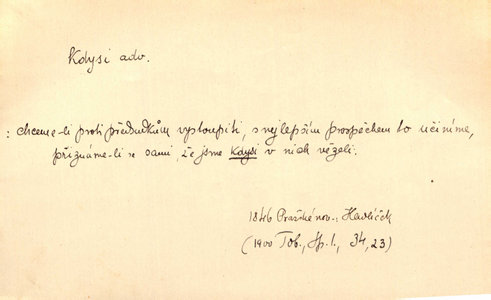 Kdysi adv.
: chceme-li proti předsudkům vystoupiti, s nejlepším prospěchem to učiníme,
přiznáme-li se sami, že jsme kdysi v nich vězeli.
1846 Pražské nov., Havlíček
(1900 Tob., Sp. I, 34, 23)